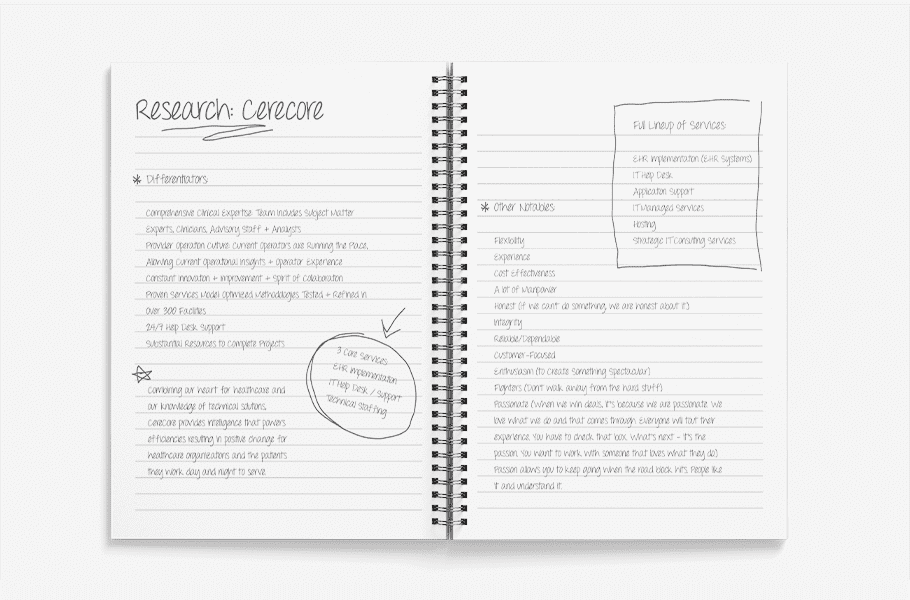 Research: Cerecore
* Differentiators
Comprehensive Clinical Expertise: Team Includes Subject Matter
Experts, Clinicians, Advisory Staff + Analysts
Provider Operation Culture: Current Operators are Running the Place,
Allowing Current Operational Insights + Operator Experience
Constant Innovation + Improvement + Spirit of Collaboration
Proven Services Model Optimized Methodologies Tested + Refined in
Over 300 Facilities
24/7 Help Desk Support
Substantial Resources to Complete Projects
3 Core Services:
EHR Implementation
IT Help Desk / Support
Technical Staffing
Combining our heart for healthcare and
our knowledge of technical solutions,
Cerecore provides intelligence that powers
efficiencies resulting in positive change for
healthcare organizations and the patients
they work day and night to serve.
Full Lineup of Services:
EHR Implementation (EHR Systems)
IT Help Desk
Application Support
IT Managed Services
Hosting
Strategic IT Consulting Services
* Other Notables
Flexibility
Experience
Cost Effectiveness
A lot of Manpower
Honest (if we can't do something, we are honest about it)
Integrity
Reliable/Dependable
Customer-Focused
Enthusiasm (to create something spectacular)
Fighters (Don't walk away from the hard stuff)
Passionate (When we win deals, it's because we are passionate. We
love what we do and that comes through. Everyone will tout their
experience. You have to check that box. What's next - it's the
passion. You want to work with someone that loves what they do)
Passion allows you to keep going when the road block hits. People like
it and understand it.